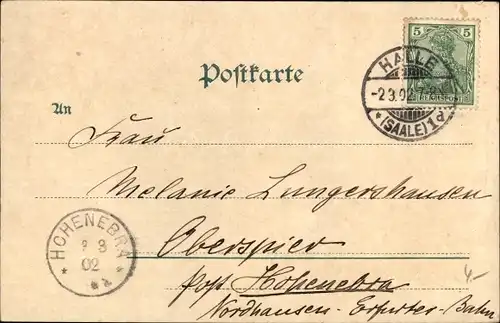 5 5
REICHSPOST
HALLE
-2.3.02.7-8
* (SAALE) 1 d
Postkarte
An
Frau
Melanie Lungershausen
Oberspier
Post Hohenebra
Nordhausen-Erfurter-Bahn.
HOHENEBRA
3
02
* *
4-